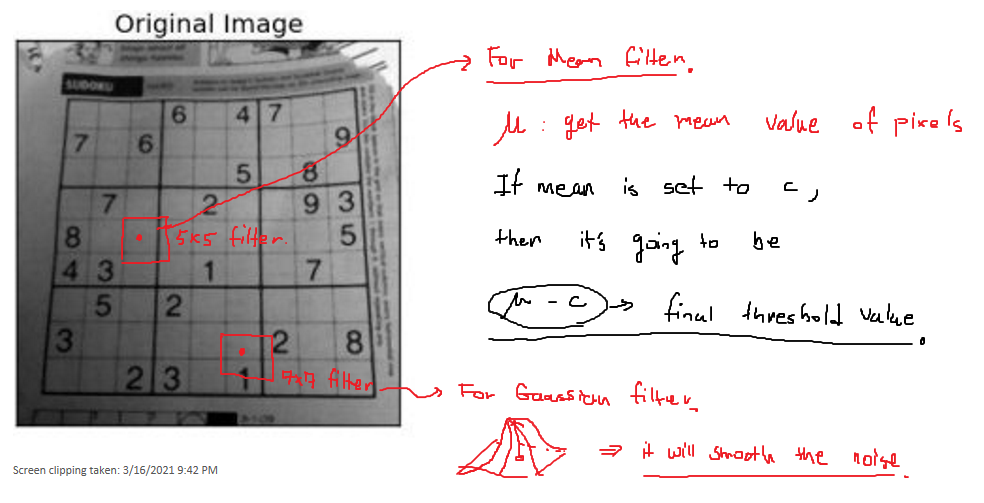 Original Image
SUDOKU
6 4 7
7 6 9
5 8
7 2 9 3
8 5
4 3 1 7
5 2
3 2 8
2 3 1
5x5 filter.
7x7 filter
For Mean filter.
μ : get the mean value of pixels
If mean is set to c,
then it's going to be
μ - c → final threshold value.
For Gaussian filter,
⇒ it will smooth the noise.
Screen clipping taken: 3/16/2021 9:42 PM